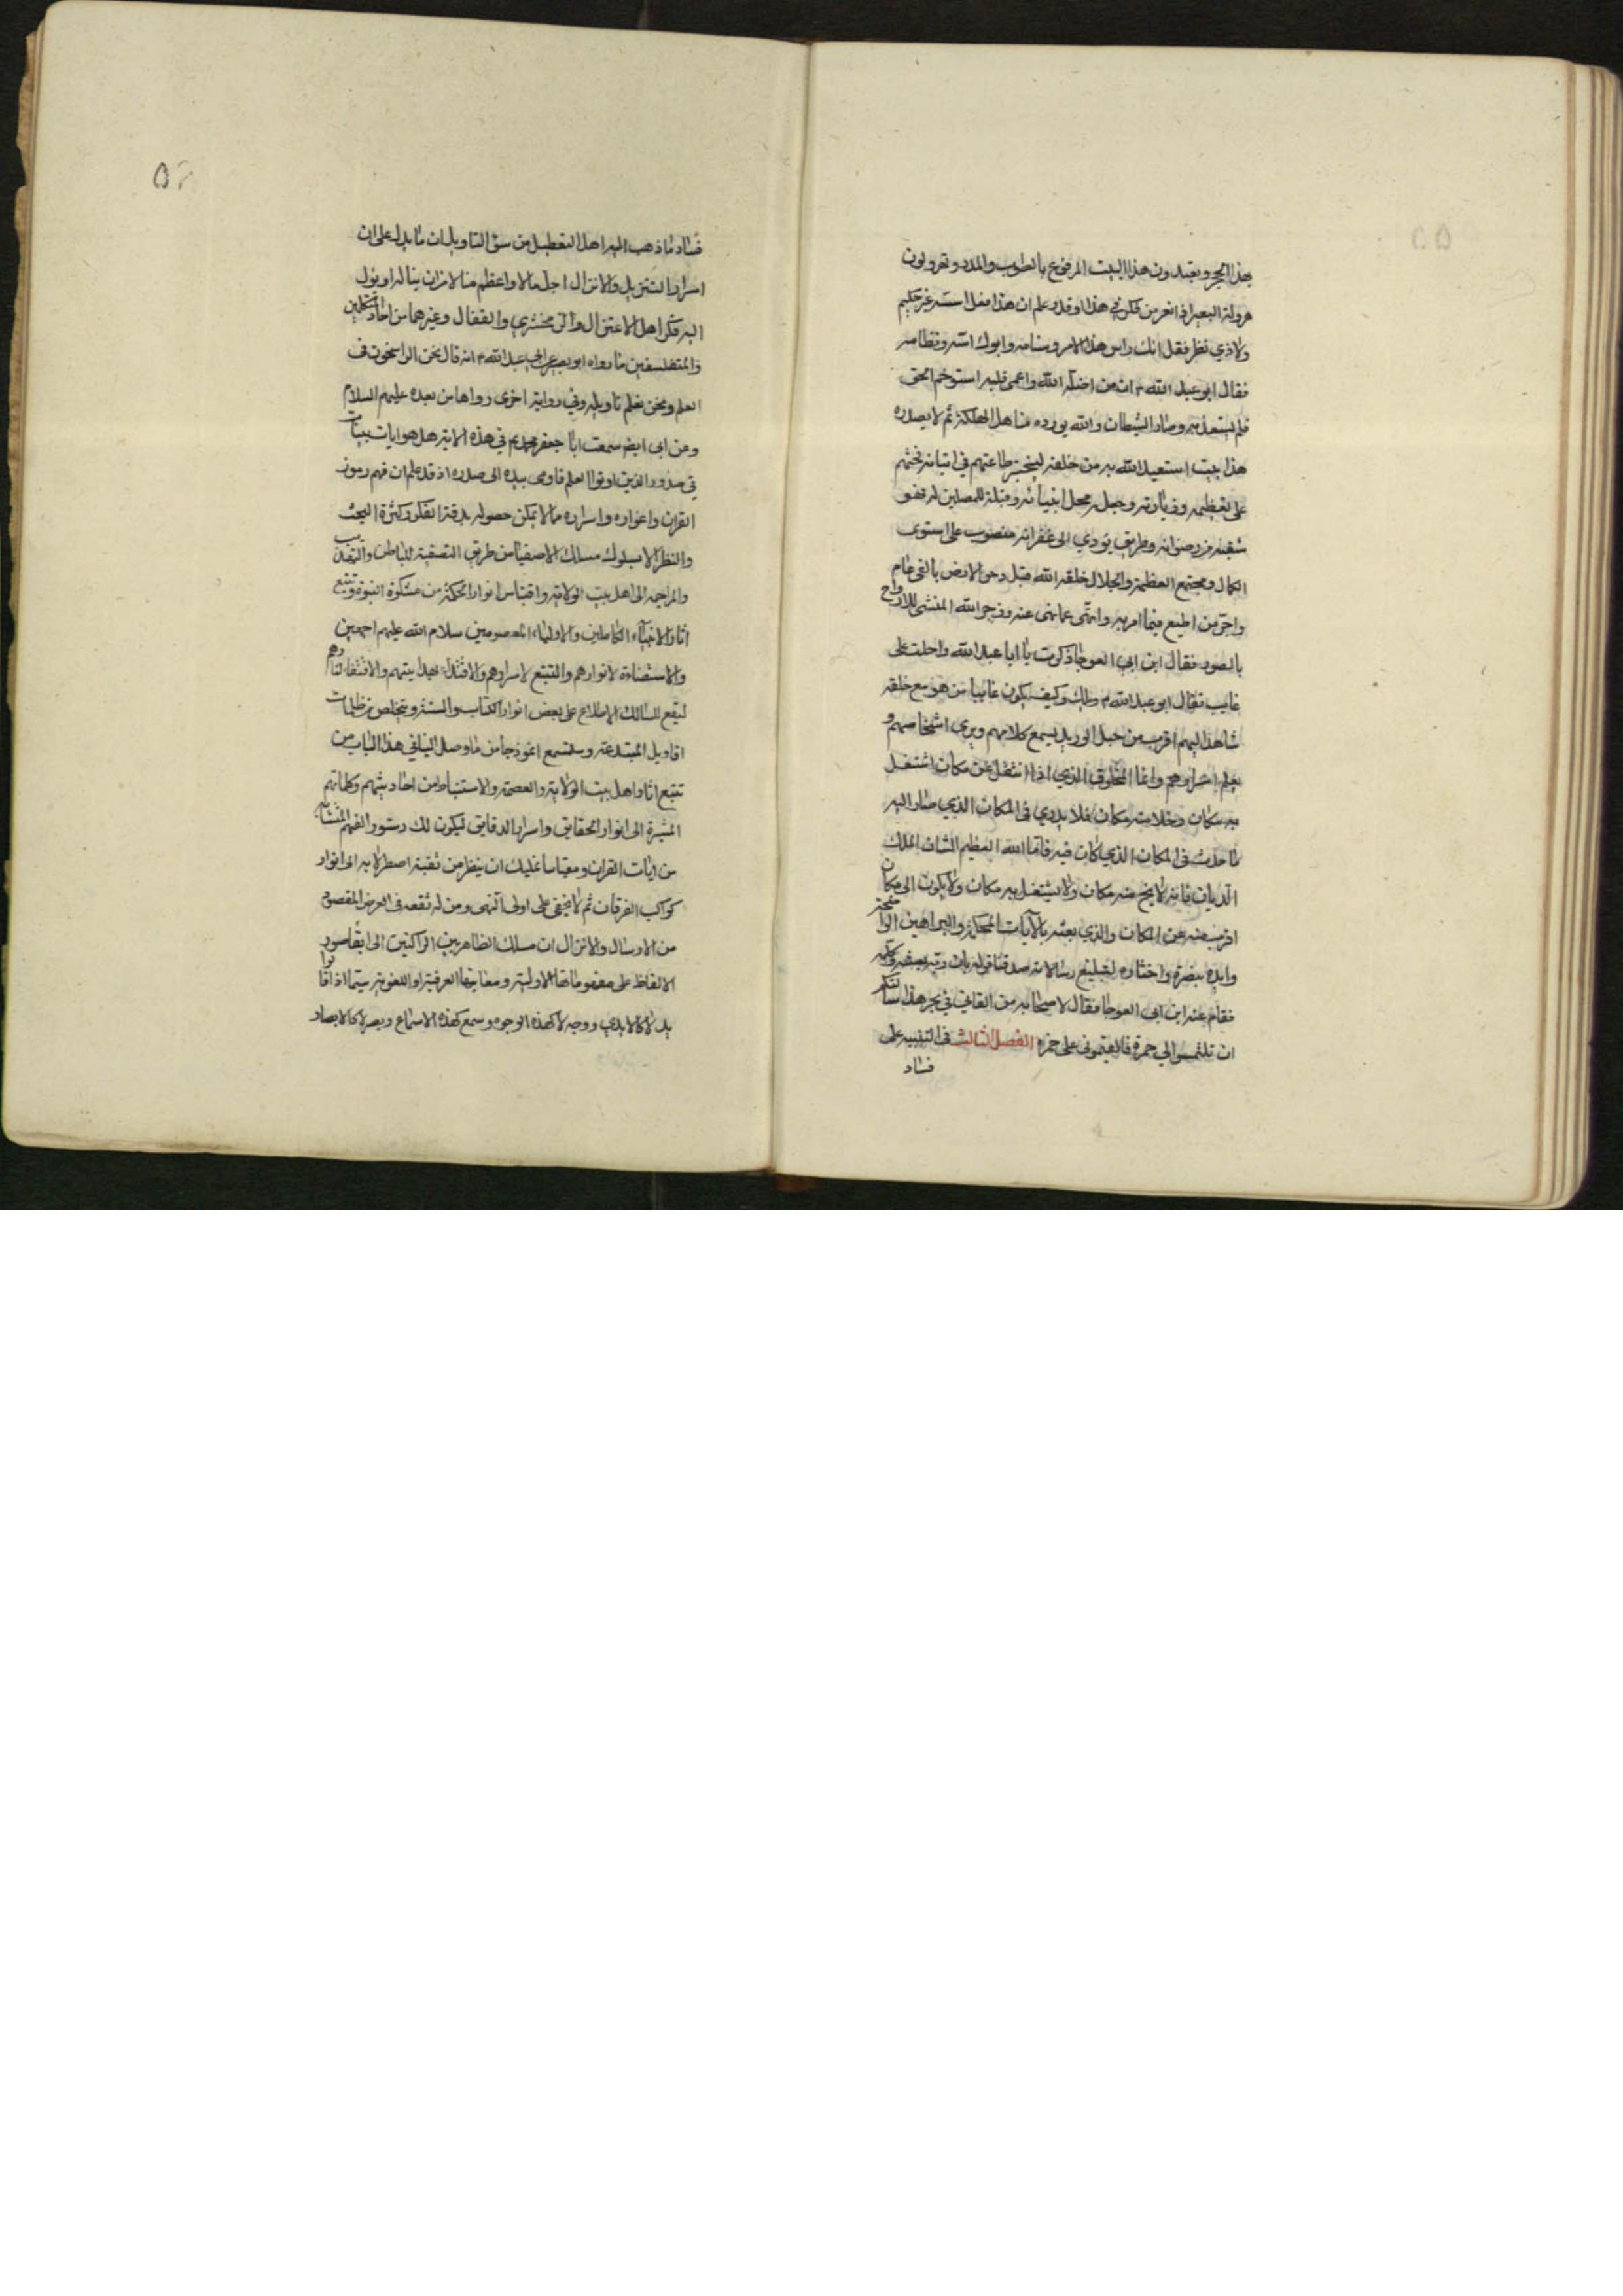 بهذا الحجر ويعبدون هذا البيت المرفوع بالطوب والمدر ويهرولون
هرولة البعير اذا نفر من فكر في هذا او قدر علم ان هذا فعل اسسه غير حكيم
ولا ذي نظر فقل انك راس هذا الامر وسنامه وابوك اسه ونظامه
فقال ابو عبد الله ان من اضله الله واعمى قلبه استوخم الحق
فلم يستعذبه وصار الشيطان وليه يورده مناهل الهلكة ثم لا يصدره
هذا بيت استعبد الله به من خلقه ليختبر طاعتهم في اتيانه فحثهم
على تعظيمه وزيارته وجعله محل انبيائه وقبلة للمصلين له فهو
شعبة من رضوانه وطريق يودي الى غفرانه منصوب على استوى
الكمال ومجتمع العظمة والجلال خلقه الله قبل دحو الارض بالفي عام
واحق من اطيع فيما امر به وانتهى عما نهى عنه وزجر الله المنشى للارواح
بالصور فقال ابن ابي العوجا ذكرت يا ابا عبد الله واحلت على
غايب فقال ابو عبد الله ويلك وكيف يكون غايبا من هو مع خلقه
شاهد اليهم اقرب من حبل الوريد يسمع كلامهم ويرى اشخاصهم و
يعلم اسرارهم وانما المخلوق الذي اذا انتقل عن مكان اشتغل
به مكان وخلا منه مكان فلا يدري في المكان الذي صار اليه
ما حدث في المكان الذي كان فيه فاما الله العظيم الشان الملك
الديان فانه لا يخ منه مكان ولا يشتغل به مكان ولا يكون الى مكان
اقرب منه من المكان والذي بعثه بالآيات المحكمة والبراهين الواضحة
وايده بنصره واختاره لتبليغ رسالاته صدقنا قوله بان ربه بعثه وكلمه
فقام عنه ابن ابي العوجا فقال لاصحابه من القاني في بحر هذا سالتكم
ان تلتمسوا لي خمرة فالقيتموني على جمرة الفصل الثالث في التنبيه على
فساد
فساد ما ذهب اليه اهل التعطيل من سوء التاويل ان ما يدل على ان
اسرار التنزيل والانزال اجل منالا واعظم منالا من ان يناله او يؤل
اليه فكر اهل الاعتزال والزمخشري والقفال وغيرهما من احاد المتكلمين
والمتفلسفين ما رواه ابو بصير عن ابي عبد الله انه قال نحن الراسخون في
العلم ونحن نعلم تاويله وفي رواية اخرى رواها من بعده عليهم السلام
وعن ابي ايضا سمعت ابا جعفر يقول في هذه الاية بل هو ايات بينات
في صدور الذين اوتوا العلم فاومى بيده الى صدره اذ قد علم ان فهم رموز
القران واغواره واسراره مما لا يمكن حصوله بدقة الفكر وكثرة البحث
والنظر الا بسلوك مسالك الاصفيا من طريق التصفية للباطن والتهذيب
والمراجعه الى اهل بيت الولاية واقتباس انوار الحكمة من مشكوة النبوة وتتبع
اثار الانبيآء الكاملين والاولياء المعصومين سلام الله عليهم اجمعين
والاستضاءة لانوارهم والتتبع لاسرارهم والاقتداء بهدايتهم والاقتفاء لاثارهم
ليقع للسالك الاطلاع على بعض انوار الكتاب والسنة ويتخلص من ظلمات
اقاويل المبتدعة وستسمع انموذجا من ما وصل الينا في هذا الباب من
تتبع اثار اهل بيت الولاية والعصمة والاستنباط من احاديثهم وكلماتهم
المشيرة الى انوار الحقايق واسرار الدقايق ليكون لك دستورا لفهم المتشابه
من ايات القران ومقياسا عليك ان ينظر من ثقبة اصطرلابه الى انوار
كواكب الفرقان ثم لا يخفى على اولى النهى ومن له تفقه في الغرض المقصود
من الارسال والانزال ان مسلك الظاهريين الراكنين الى ابقا صور
الالفاظ على مفهوماتها الاولية ومعانيها العرفية او اللغوية سيما اذا قالوا
يد لا كالايدي ووجه لا كهذه الوجوه وسمع لا كهذه الاسماع وبصر لا كالابصار